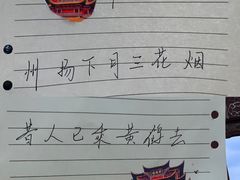 州扬下月三花烟
昔人已乘黄鹤去